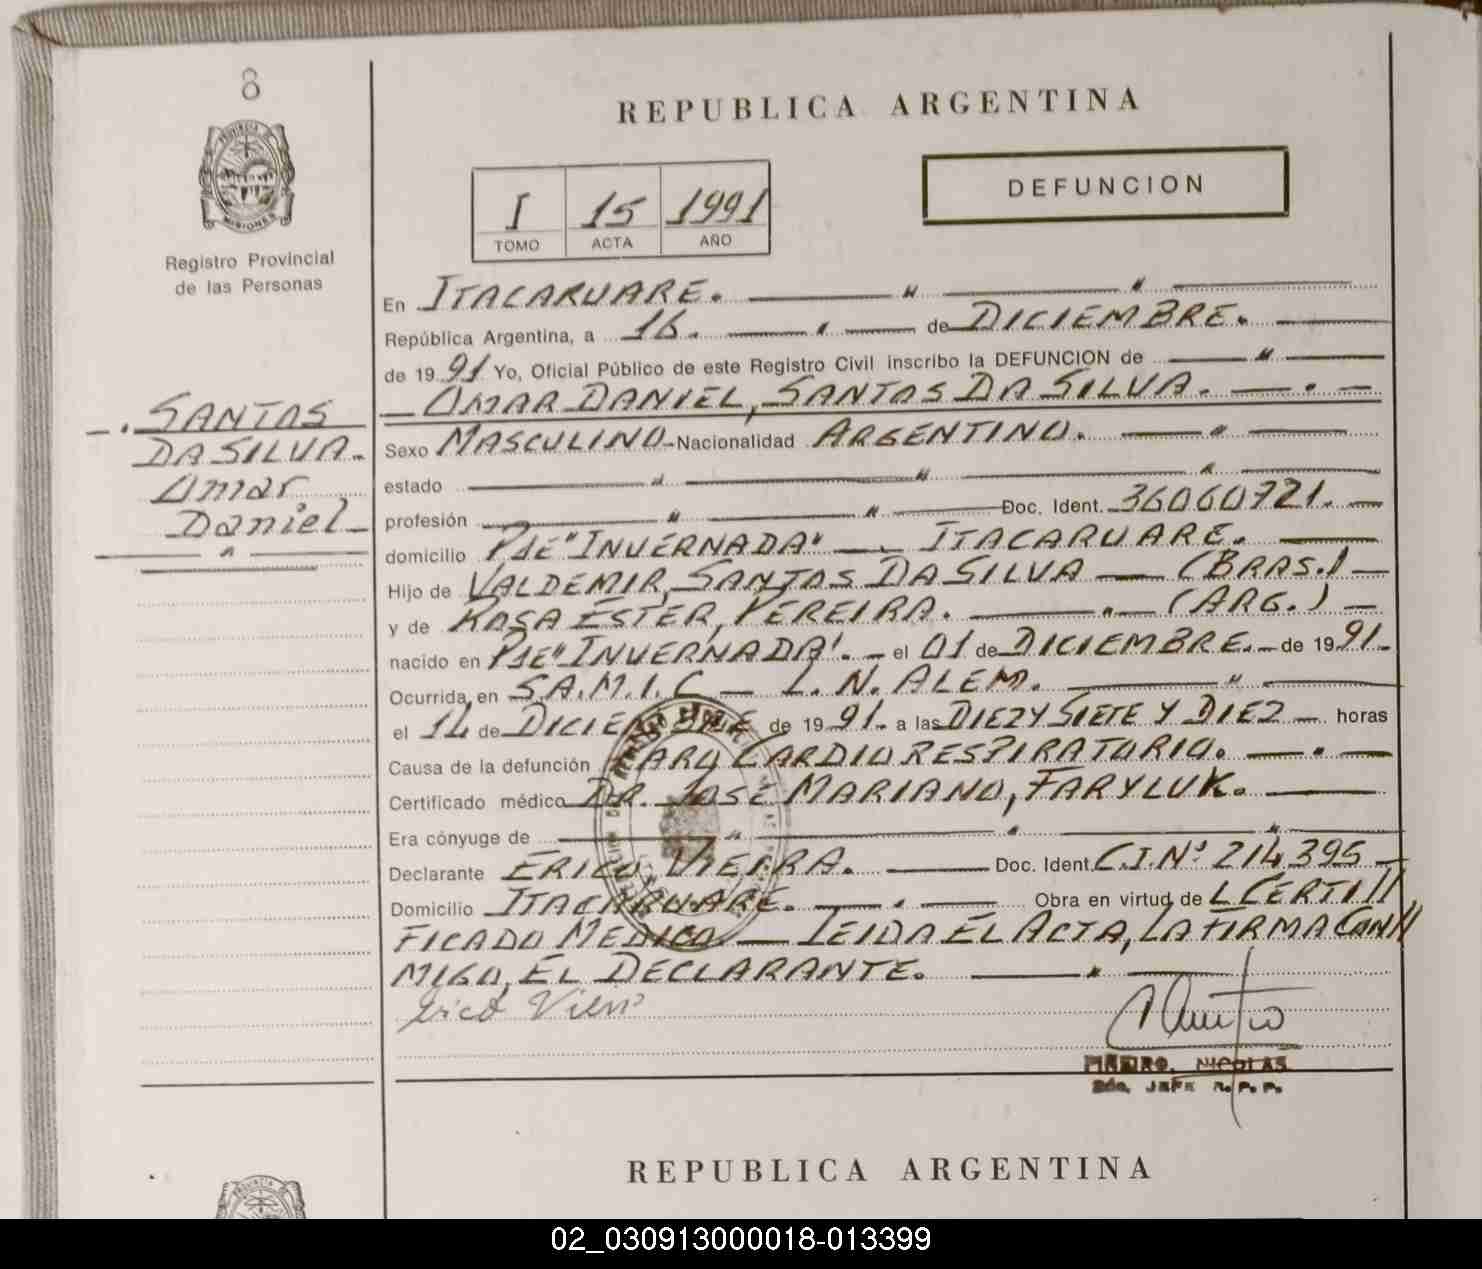 8
PROVINCIA DE
MISIONES
Registro Provincial
de las Personas
SANTOS
DA SILVA.
Omar
Daniel
REPUBLICA ARGENTINA
I 15 1991
TOMO ACTA AÑO
DEFUNCION
En ITACARUARE.
República Argentina, a 16. de DICIEMBRE.
de 19 91 Yo, Oficial Público de este Registro Civil inscribo la DEFUNCION de
OMAR DANIEL, SANTOS DA SILVA.
Sexo MASCULINO Nacionalidad ARGENTINO.
estado
profesión Doc. Ident. 36060721.
domicilio PJE "INVERNADA" ITACARUARE.
Hijo de VALDEMIR, SANTOS DA SILVA (BRAS.)
y de ROSA ESTER, PEREIRA. (ARG.)
nacido en PJE "INVERNADA". el 01 de DICIEMBRE. de 19 91.
Ocurrida en S.A.M.I.C L. N. ALEM.
el 14 de DICIEMBRE de 19 91. a las DIEZ Y SIETE Y DIEZ horas
Causa de la defunción PARO CARDIO RESPIRATORIO.
Certificado médico DR. JOSE MARIANO, FARYLUK.
Era cónyuge de
Declarante ERICO, VIEIRA. Doc. Ident. C.I.Nº 214.395
Domicilio ITACARUARE. Obra en virtud de L CERTI//
FICADO MEDICO LEIDA EL ACTA, LA FIRMA CON//
MIGO, EL DECLARANTE.
NICOLAS
2do. JEFE R.P.P.
REPUBLICA ARGENTINA
02_030913000018-013399